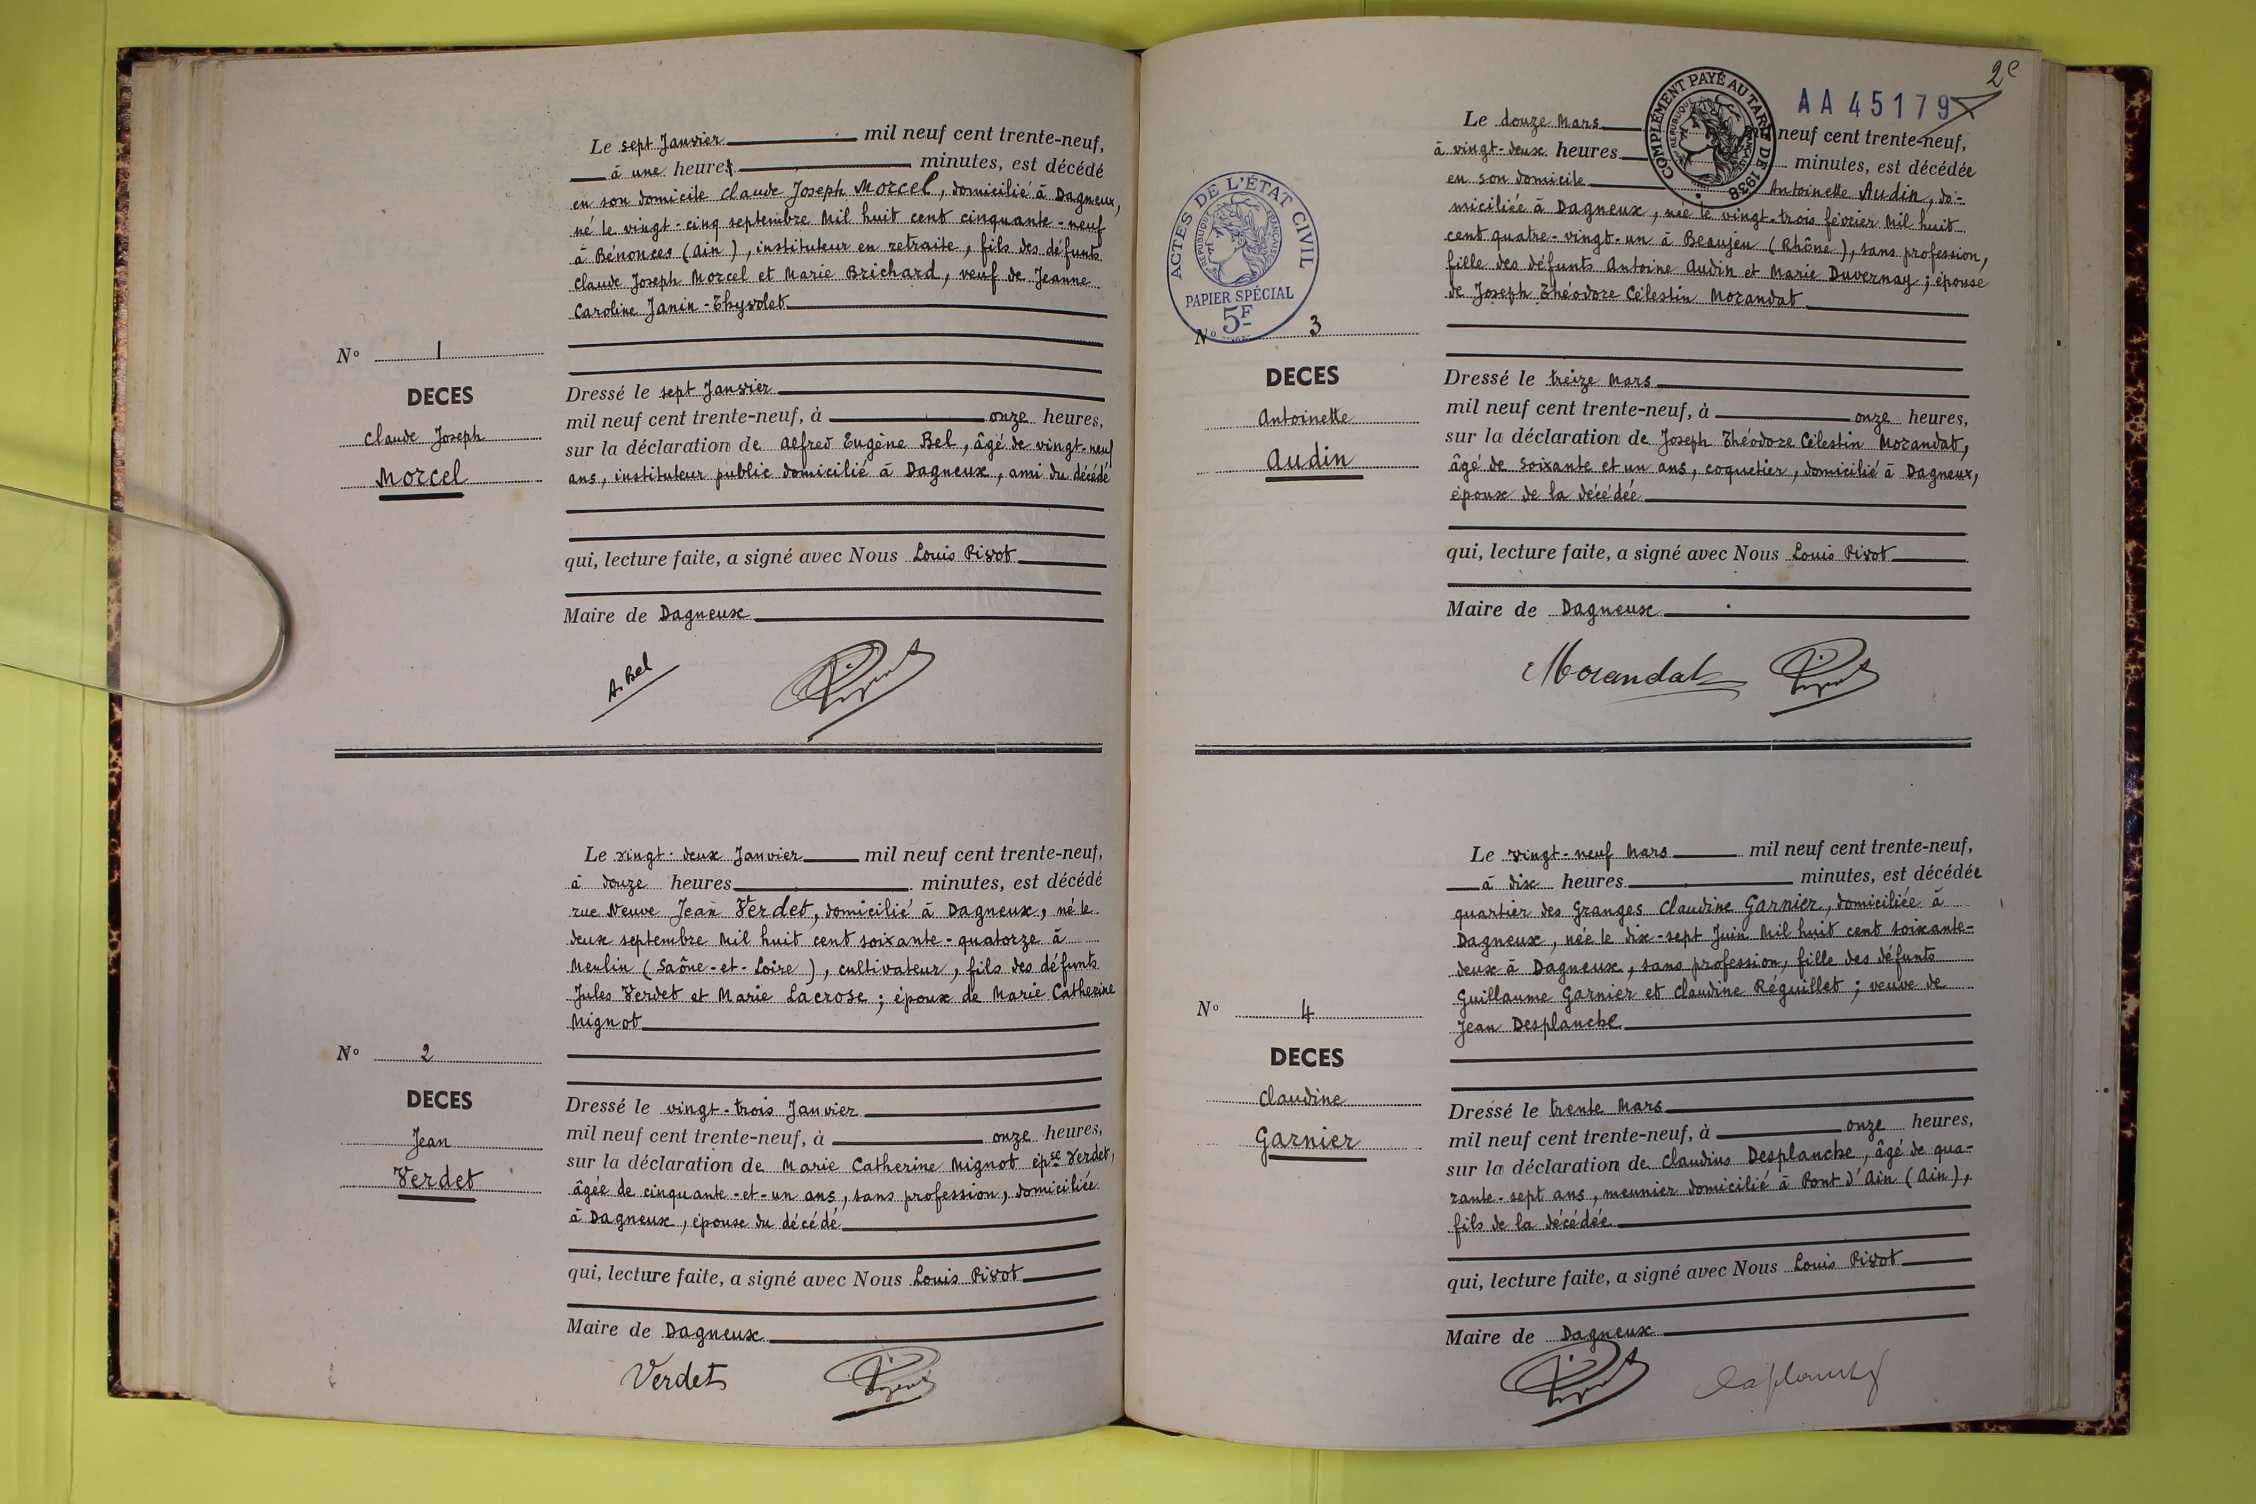 Le sept Janvier mil neuf cent trente-neuf,
à une heures minutes, est décédé
en son domicile Claude Joseph Morcel, domicilié à Dagneux,
né le vingt-cinq septembre Mil huit cent cinquante-neuf
à Bénonces (Ain), instituteur en retraite, fils des défunts
Claude Joseph Morcel et Marie Brichard, veuf de Jeanne
Caroline Janin-Thyvolet
N° 1
DECES
Claude Joseph
Morcel
Dressé le sept Janvier
mil neuf cent trente-neuf, à onze heures,
sur la déclaration de Alfred Eugène Bel, âgé de vingt-neuf
ans, instituteur public domicilié à Dagneux, ami du décédé
qui, lecture faite, a signé avec Nous Louis Pivot
Maire de Dagneux
A. Bel
Le vingt-deux Janvier mil neuf cent trente-neuf,
à douze heures minutes, est décédé
rue Neuve Jean Verdet, domicilié à Dagneux, né le
deux septembre Mil huit cent soixante-quatorze à
Meulin (Saône-et-Loire), cultivateur, fils des défunts
Jules Verdet et Marie Lacrose; époux de Marie Catherine
Mignot
N° 2
DECES
Jean
Verdet
Dressé le vingt-trois Janvier
mil neuf cent trente-neuf, à onze heures,
sur la déclaration de Marie Catherine Mignot épse Verdet,
âgée de cinquante-et-un ans, sans profession, domiciliée
à Dagneux, épouse du décédé
qui, lecture faite, a signé avec Nous Louis Pivot
Maire de Dagneux
Verdet
2e
AA 45179
COMPLÉMENT PAYÉ AU TARIF DE 1938
RÉPUBLIQUE FRANÇAISE
Le douze Mars neuf cent trente-neuf,
à vingt-deux heures minutes, est décédée
en son domicile Antoinette Audin, do-
miciliée à Dagneux, née le vingt-trois février Mil huit
cent quatre-vingt-un à Beaujeu (Rhône), sans profession,
fille des défunts Antoine Audin et Marie Duvernay; épouse
de Joseph Théodore Célestin Morandat
ACTES DE L'ÉTAT CIVIL
RÉPUBLIQUE FRANÇAISE
PAPIER SPÉCIAL
5F
N° 3
DECES
Antoinette
Audin
Dressé le treize Mars
mil neuf cent trente-neuf, à onze heures,
sur la déclaration de Joseph Théodore Célestin Morandat,
âgé de soixante et un ans, coquetier, domicilié à Dagneux,
époux de la décédée
qui, lecture faite, a signé avec Nous Louis Pivot
Maire de Dagneux
Morandat
Le vingt-neuf Mars mil neuf cent trente-neuf,
à dix heures minutes, est décédée
quartier des Granges Claudine Garnier, domiciliée à
Dagneux, née le dix-sept Juin Mil huit cent soixante-
deux à Dagneux, sans profession, fille des défunts
Guillaume Garnier et Claudine Réguillet; veuve de
Jean Desplanche
N° 4
DECES
Claudine
Garnier
Dressé le trente Mars
mil neuf cent trente-neuf, à onze heures,
sur la déclaration de Claudius Desplanche, âgé de qua-
rante-sept ans, meunier domicilié à Pont d'Ain (Ain),
fils de la décédée
qui, lecture faite, a signé avec Nous Louis Pivot
Maire de Dagneux